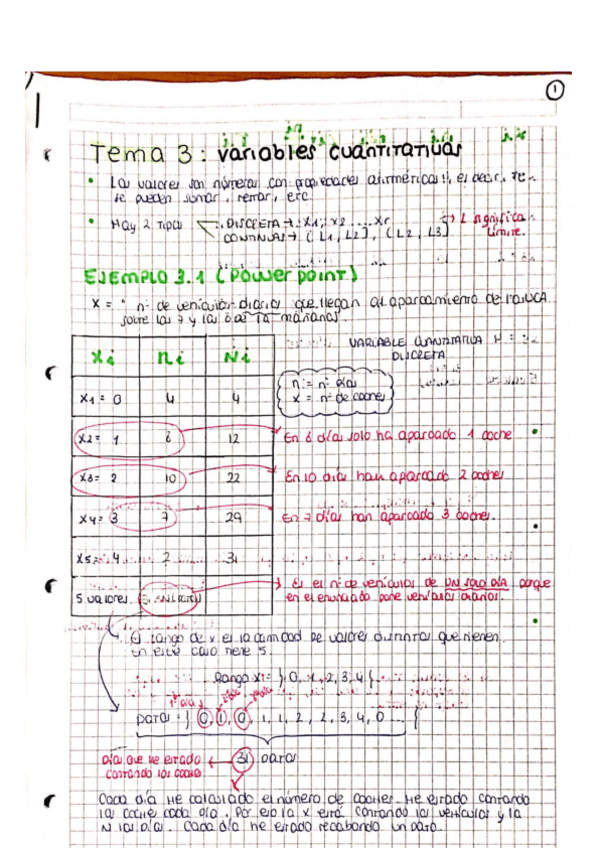 1
Tema 3: variables cuantitativas
• Los valores son números con propiedades aritméticas, es decir, se
se pueden sumar, restar, etc.
• Hay 2 tipos DISCRETA → x1, x2 .... xr
CONTINUAS → (L1, L2], (L2, L3] → L significa
límite.
EJEMPLO 3.1 (Power point)
x = " nº de vehículos diarios que llegan al aparcamiento de la UCA
sobre las 7 y las 8 de la mañana".
VARIABLE CUANTITATIVA
DISCRETA
xi ni Ni
n = nº días
x = nº de coches
x1 = 0 4 4
x2 = 1 8 12 En 8 días solo ha aparcado 1 coche
x3 = 2 10 22 En 10 días han aparcado 2 coches
x4 = 3 7 29 En 7 días han aparcado 3 coches.
x5 = 4 2 31
5 valores. Es el nº de vehículos de UN SOLO DÍA porque
en el enunciado pone vehículos diarios.
El rango de x es la cantidad de valores distintos que tienen.
En este caso tiene 5.
Rango x = { 0, 1, 2, 3, 4 {
1º día
para = { 0, 1, 0, 1, 1, 2, 2, 3, 4, 0 ... {
Día que he estado ← 31 para
contando los coches
Cada día he calculado el número de coches. He estado contando
los coches cada día. Por eso la x está contando los vehículos y la
N los días. Cada día he estado recabando un para.